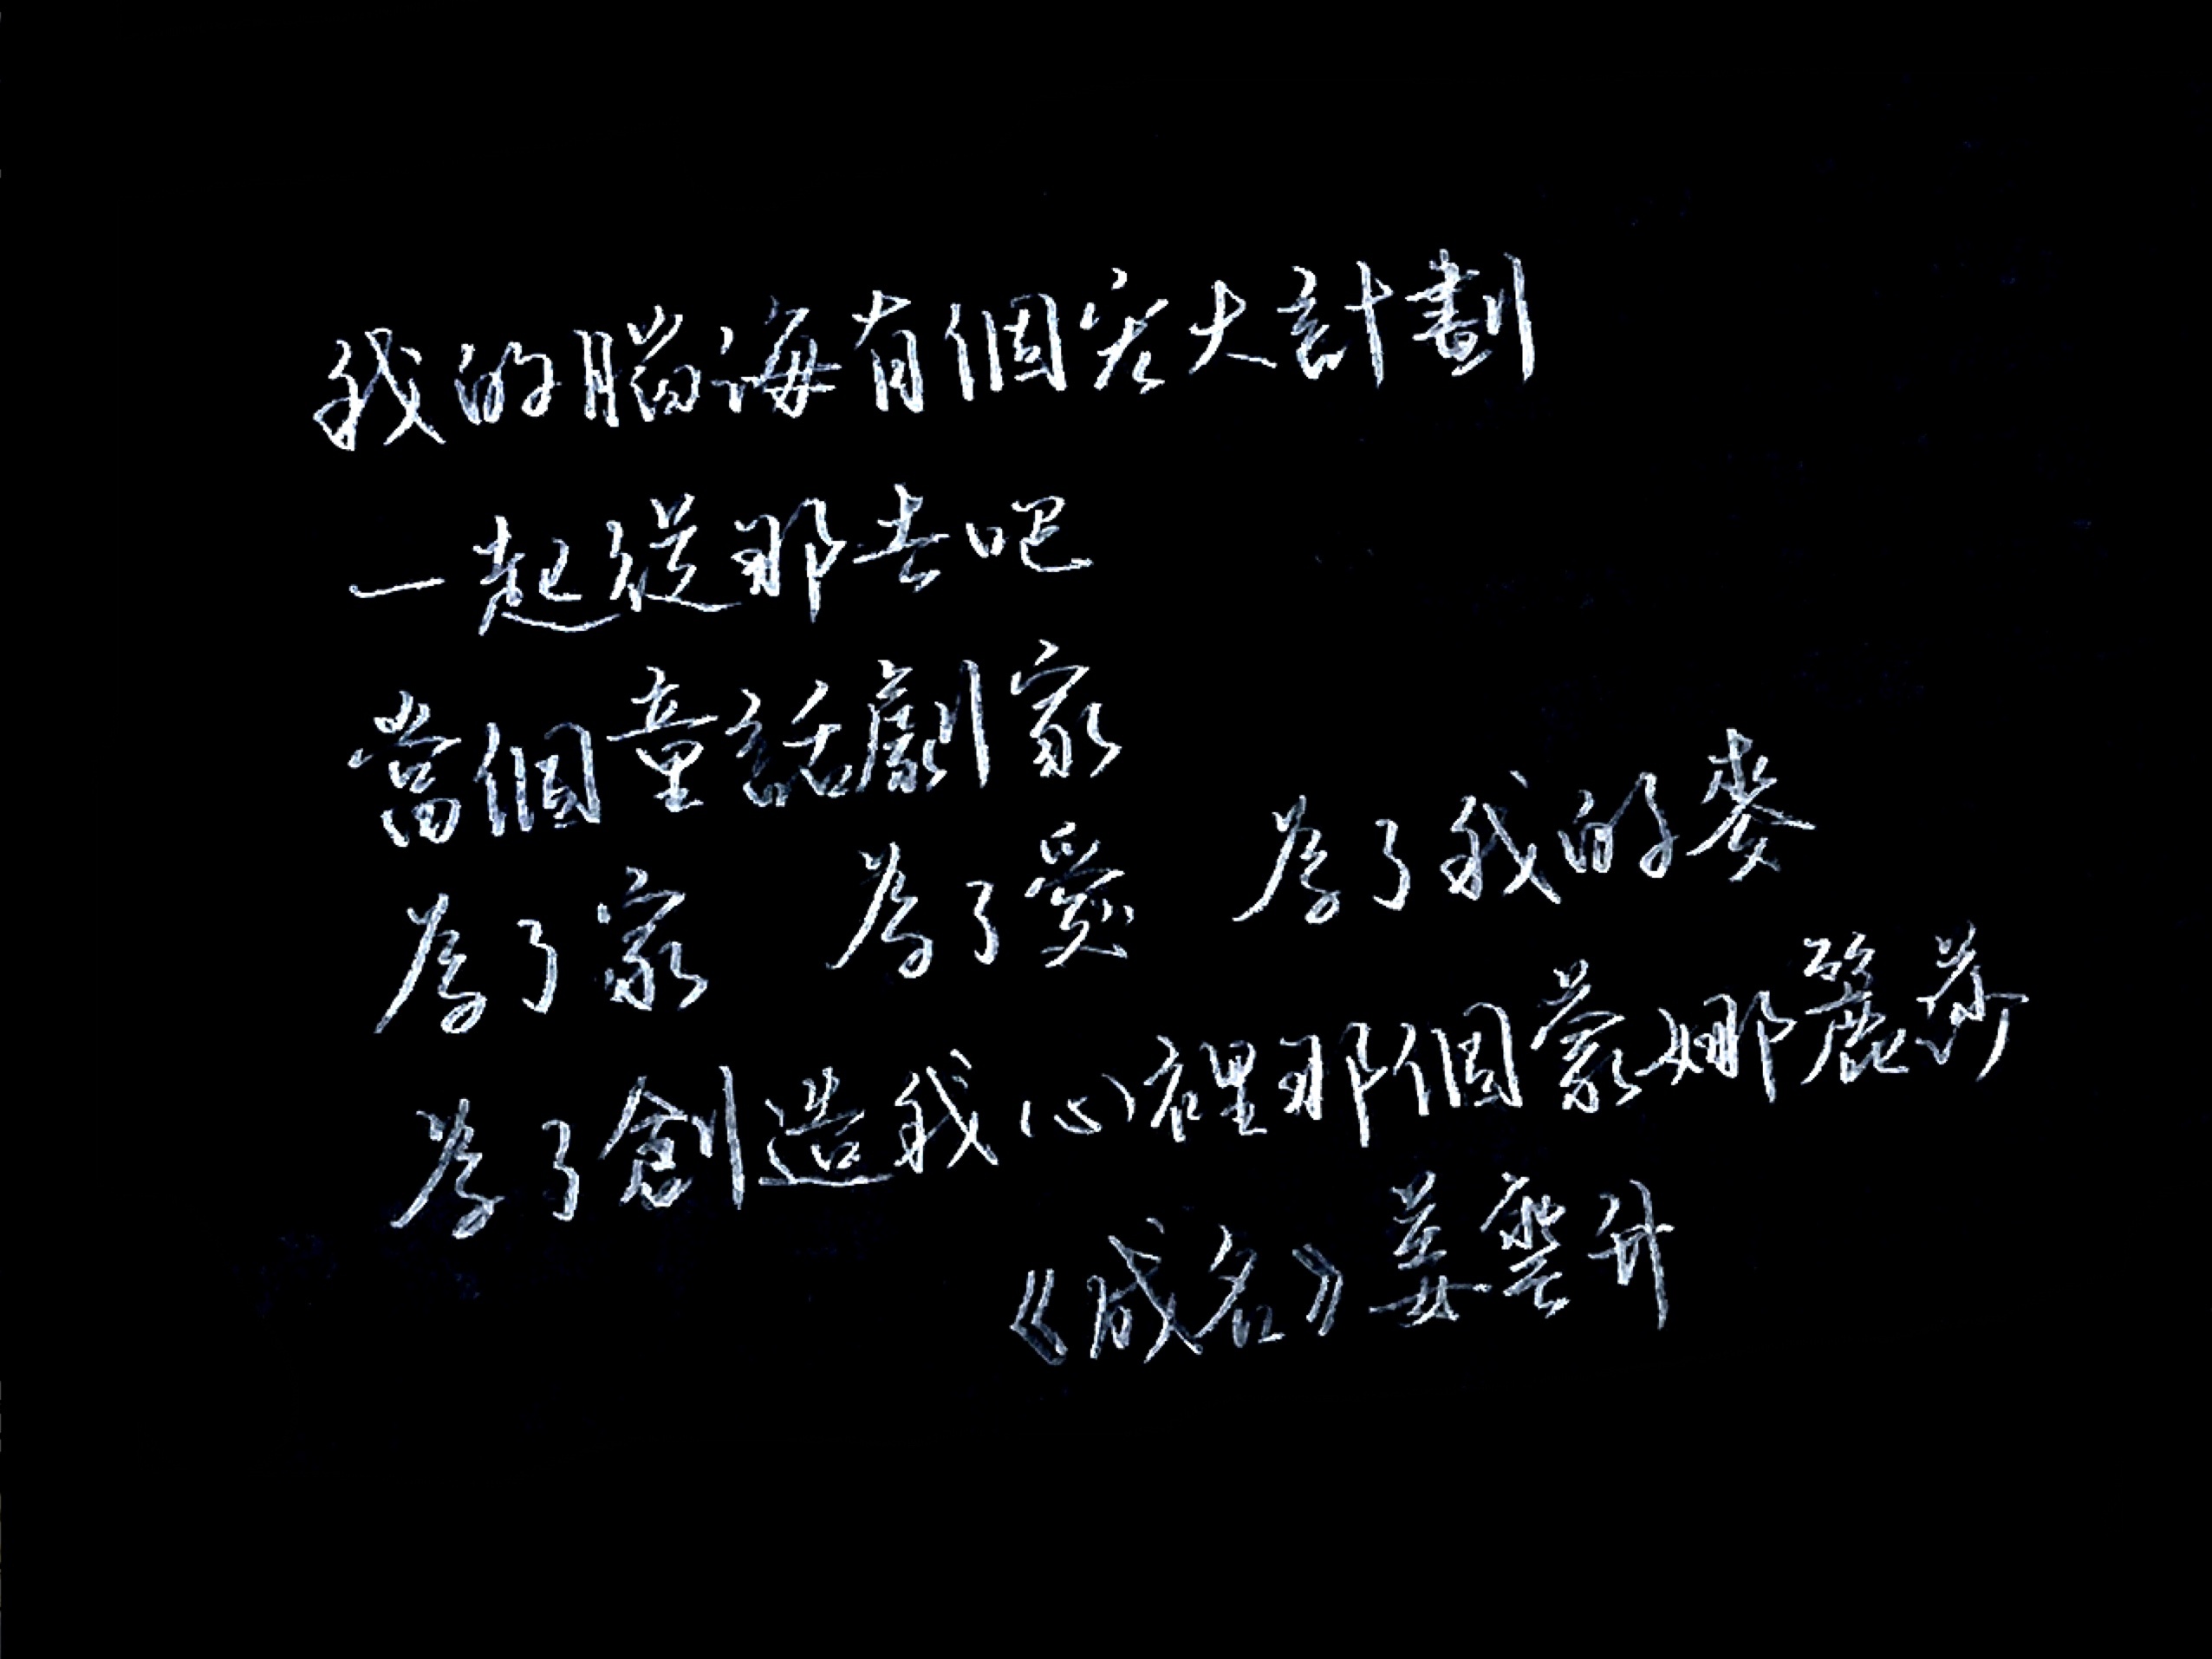 我的腦海有個宏大計劃
一起從那去吧
當個童話劇家
為了家 為了愛 為了我的麥
為了創造我心裡那個蒙娜麗莎
《成名》姜雲升